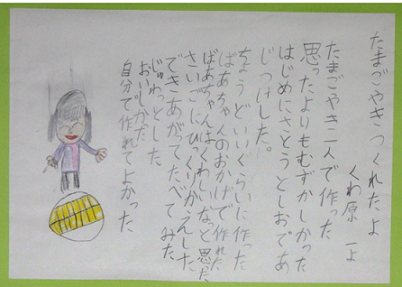 たまごやきつくれたよ
くわ原 一よ
たまごやき二人で作った
思ったよりもむずかしかった
はじめにさとうとしおであ
じつけした。
ちょうどいいくらいに作った
ばあちゃんのおかげで作れた
ばあちゃんはくわしいなと思った
さいごにひっくりかえした
できあがってたべてみた
じゅわっとした
おいしかた
自分で作れてよかった